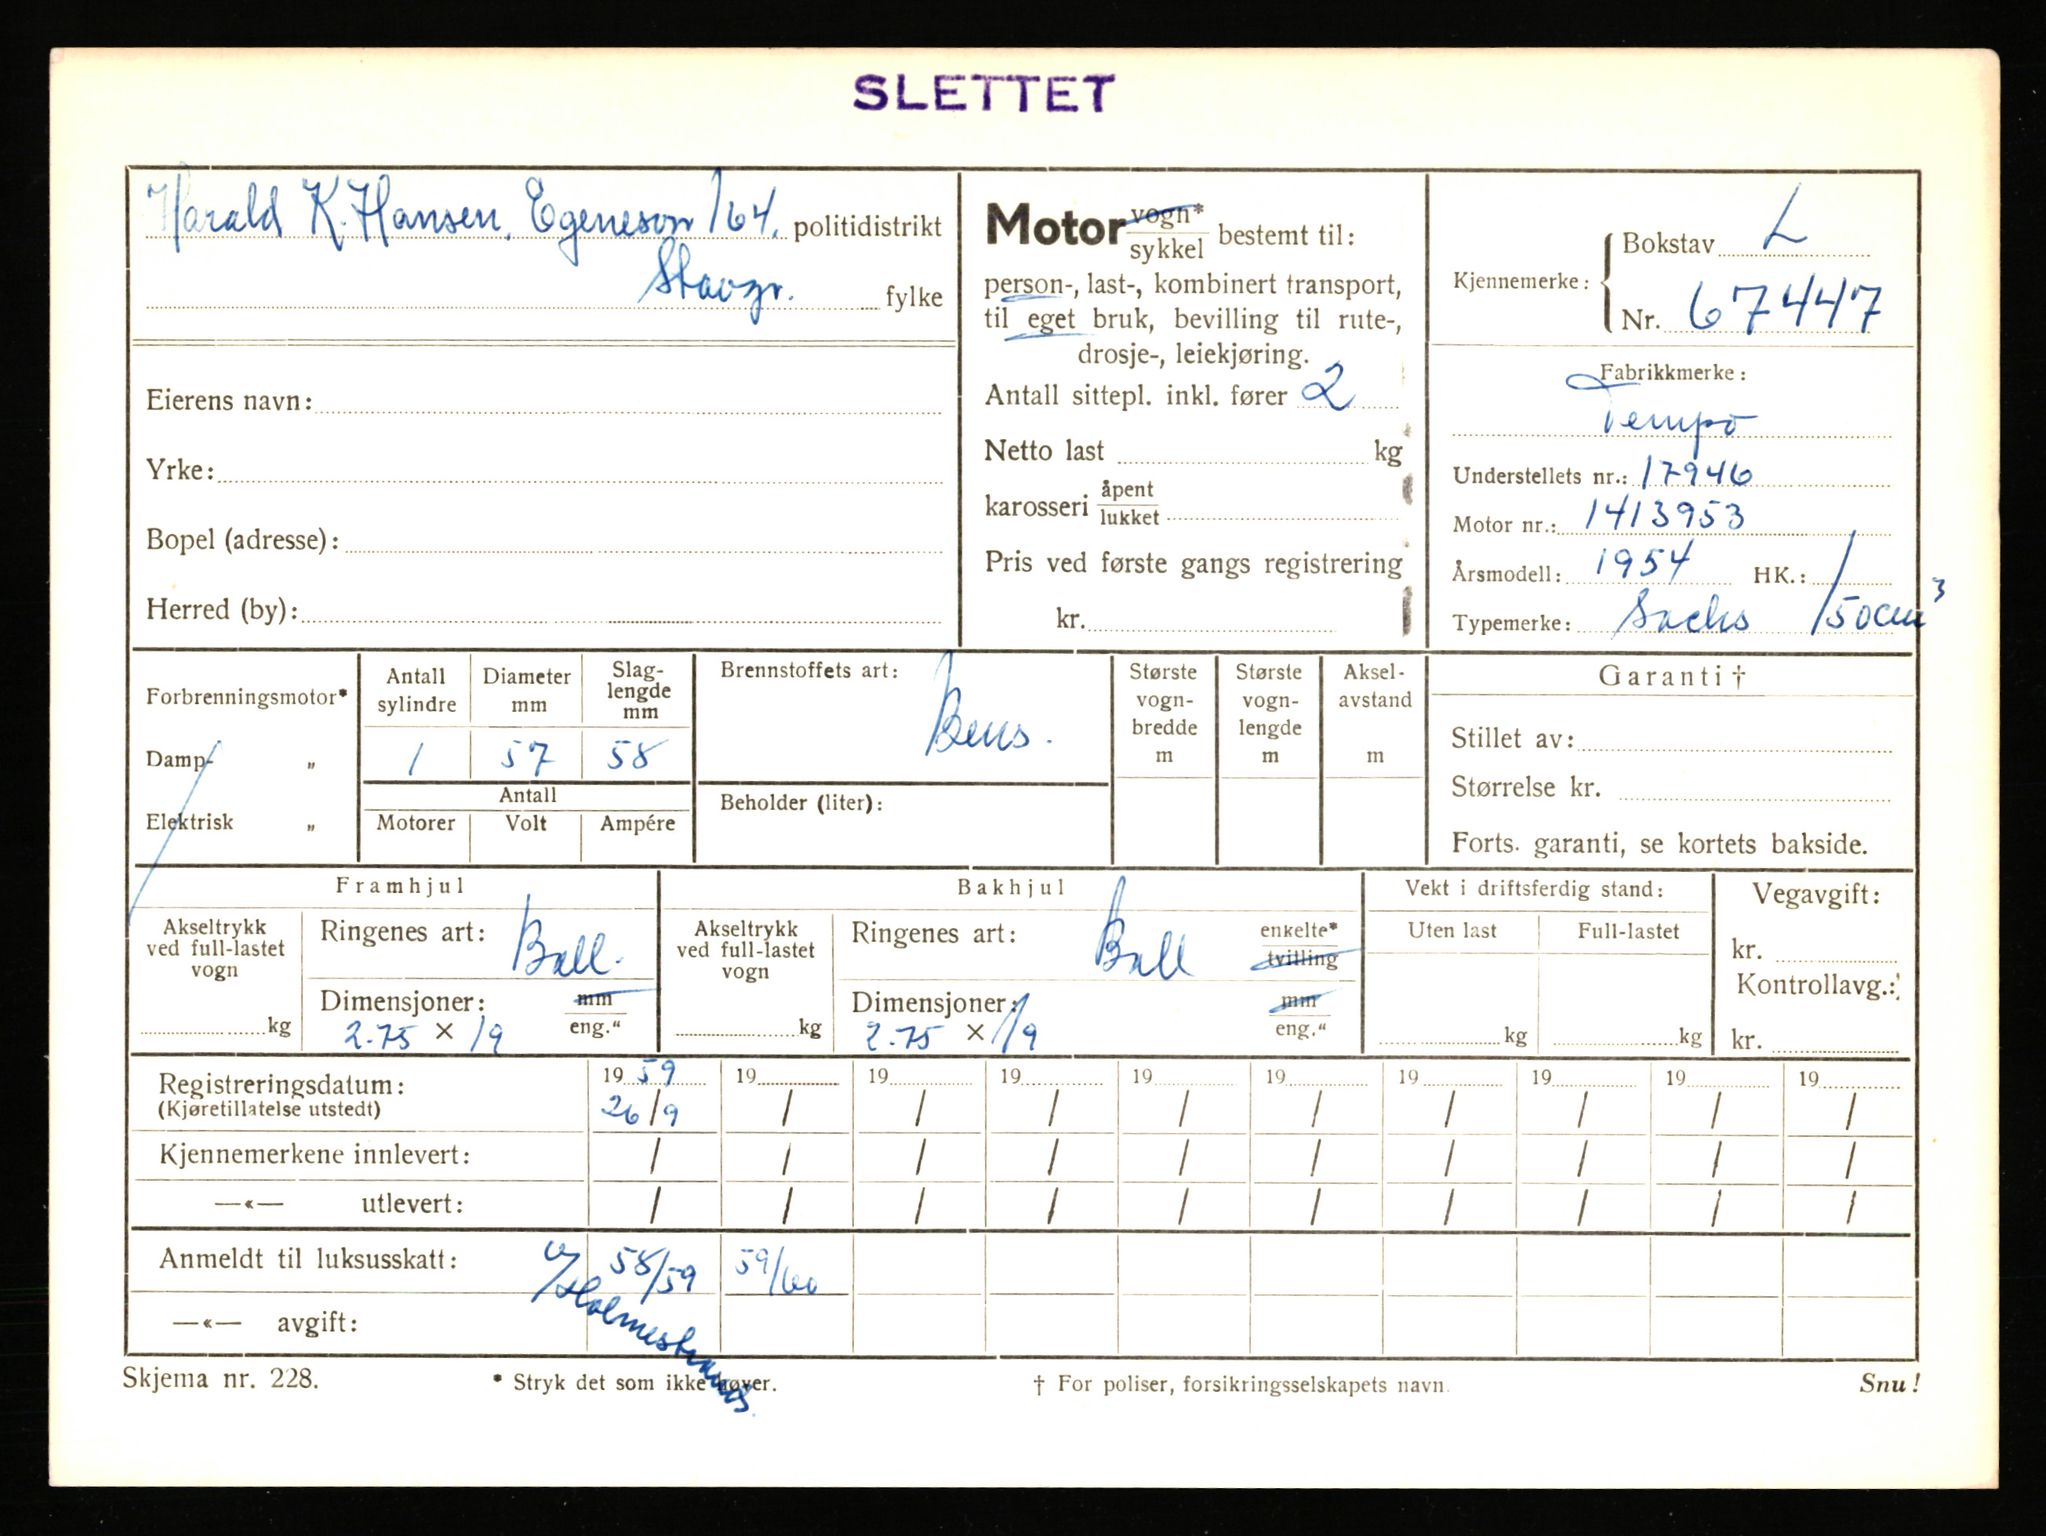 SLETTET
Harald K. Hansen, Egenesvn 164. politidistrikt
Stavgr. fylke
Eierens navn:
Yrke:
Bopel (adresse):
Herred (by):
Motor vogn* / sykkel bestemt til:
person-, last-, kombinert transport,
til eget bruk, bevilling til rute-,
drosje-, leiekjøring.
Antall sittepl. inkl. fører 2
Netto last kg
karosseri åpent / lukket
Pris ved første gangs registrering
kr.
Kjennemerke: Bokstav L
Nr. 67447
Fabrikkmerke:
Tempo
Understellets nr.: 17946
Motor nr.: 1413953
Årsmodell: 1954 HK.:
Typemerke: Sachs /50cm³
Forbrenningsmotor*
Damp- „
Elektrisk „
Antall sylindre Diameter mm Slag-lengde mm
1 57 58
Antall
Motorer Volt Ampére
Brennstoffets art: Bens.
Beholder (liter):
Største vogn-bredde m
Største vogn-lengde m
Aksel-avstand m
Garanti †
Stillet av:
Størrelse kr.
Forts. garanti, se kortets bakside.
Framhjul
Akseltrykk ved full-lastet vogn
kg
Ringenes art: Ball.
Dimensjoner: mm / eng."
2.75 × 19
Bakhjul
Akseltrykk ved full-lastet vogn
kg
Ringenes art: Ball enkelte* / tvilling
Dimensjoner: mm / eng."
2.75 × 19
Vekt i driftsferdig stand:
Uten last Full-lastet
kg kg
Vegavgift:
kr.
Kontrollavg.:
kr.
Registreringsdatum: 19 59 19 19 19 19 19 19 19 19 19
(Kjøretillatelse utstedt) 26/9 / / / / / / / / /
Kjennemerkene innlevert: / / / / / / / / / /
—«— utlevert: / / / / / / / / / /
Anmeldt til luksusskatt: 58/59 59/60
—«— avgift:
Skjema nr. 228. * Stryk det som ikke høver. † For poliser, forsikringsselskapets navn. Snu!